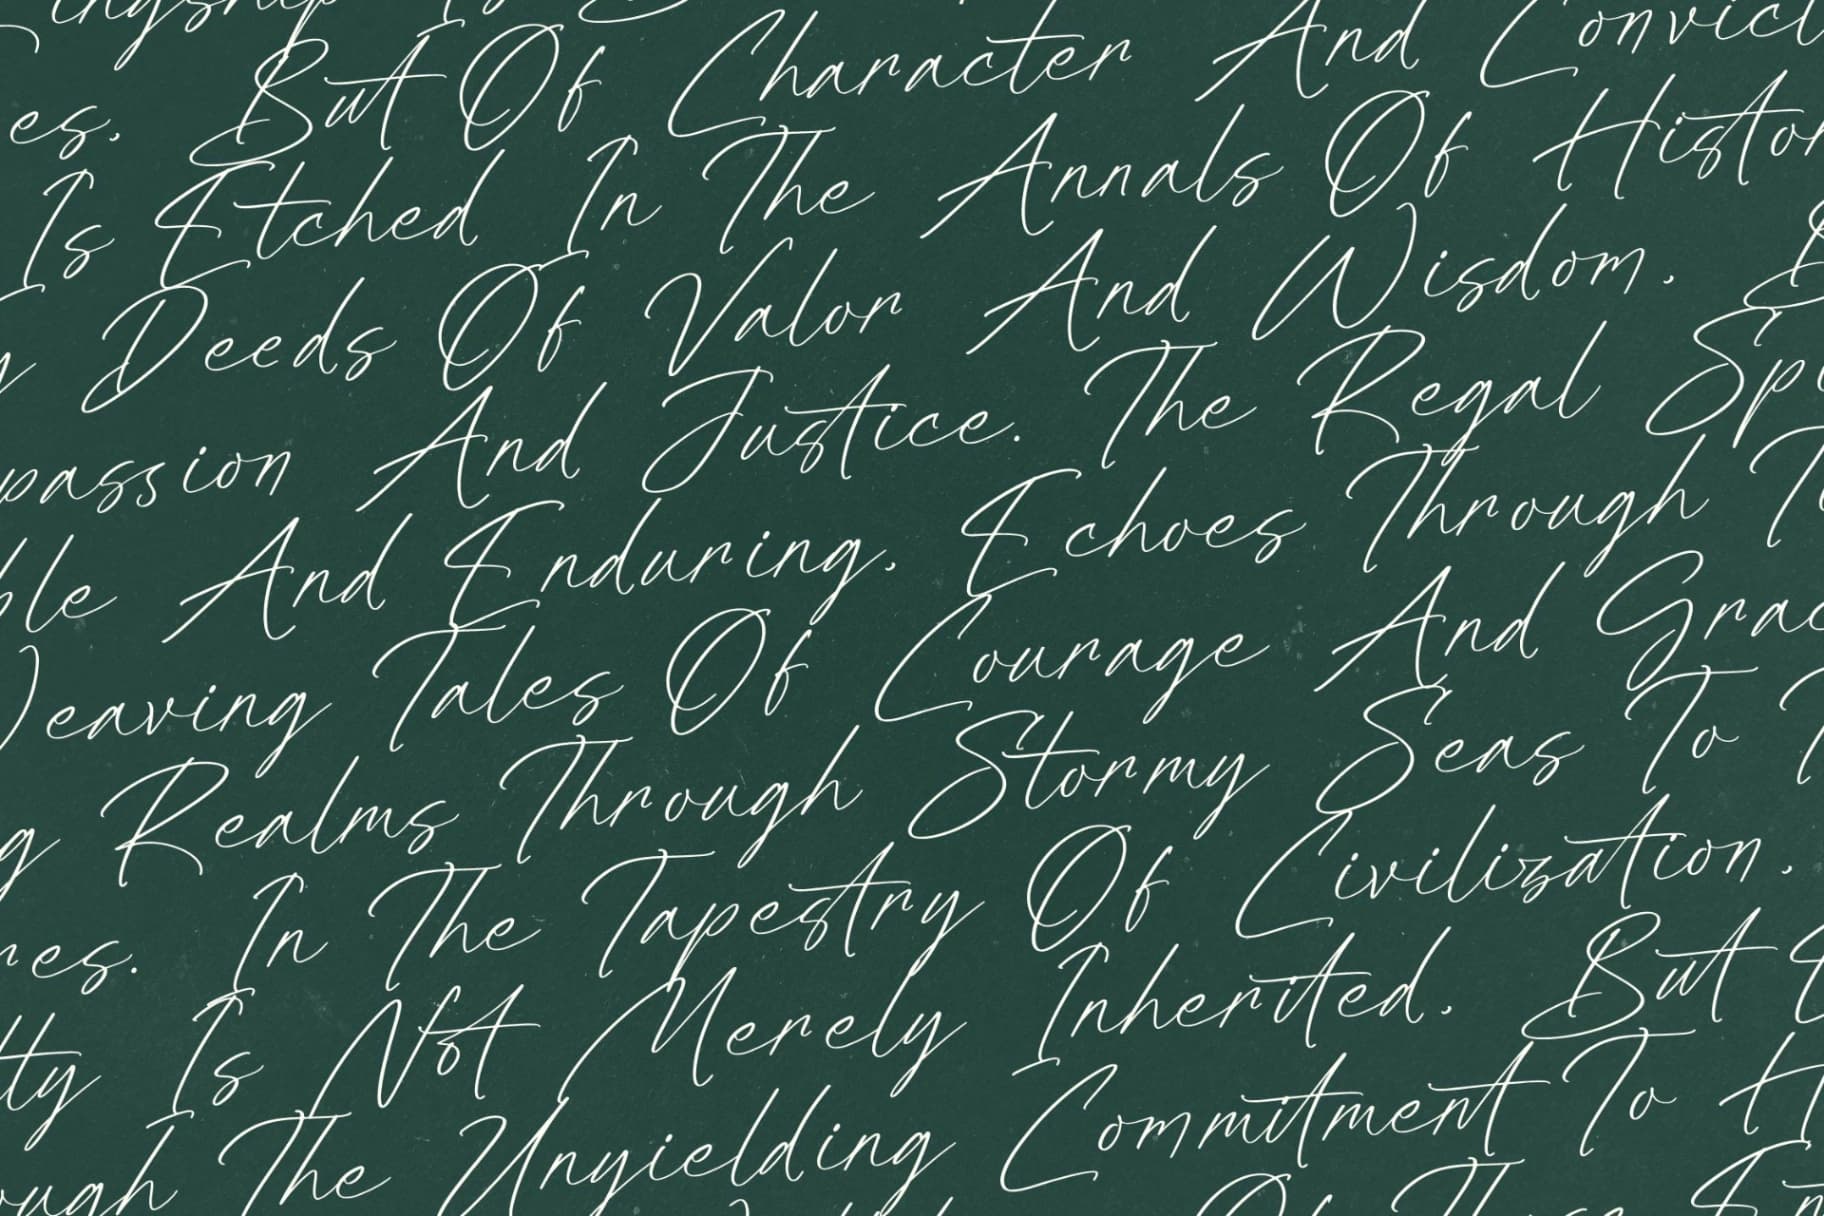 But Of Character And
Is Etched In The Annals Of
Deeds Of Valor And Wisdom.
And Justice. The Regal
And Enduring. Echoes Through
Tales Of Courage And
Realms Through Stormy Seas To
In The Tapestry Of Civilization.
Is Not Merely Inherited. But
The Unyielding Commitment To